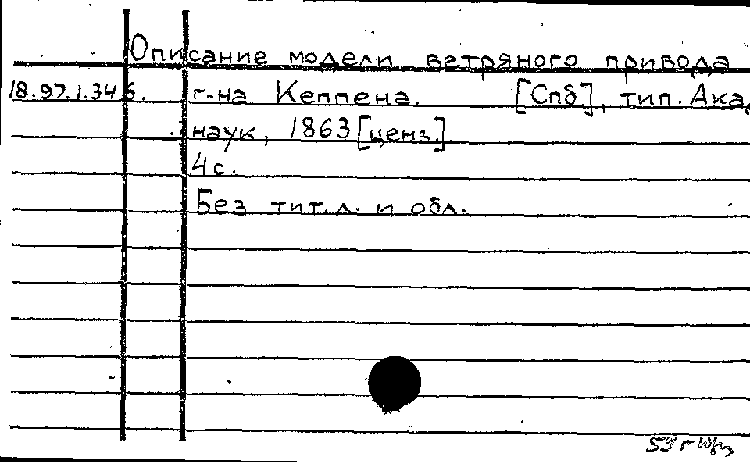 Описание модели ветряного привода
18.97.1.346. г-на Кеппена. [Спб], тип. Ака
наук, 1863 [ценз.]
4 с.
Без тит. л. и обл.